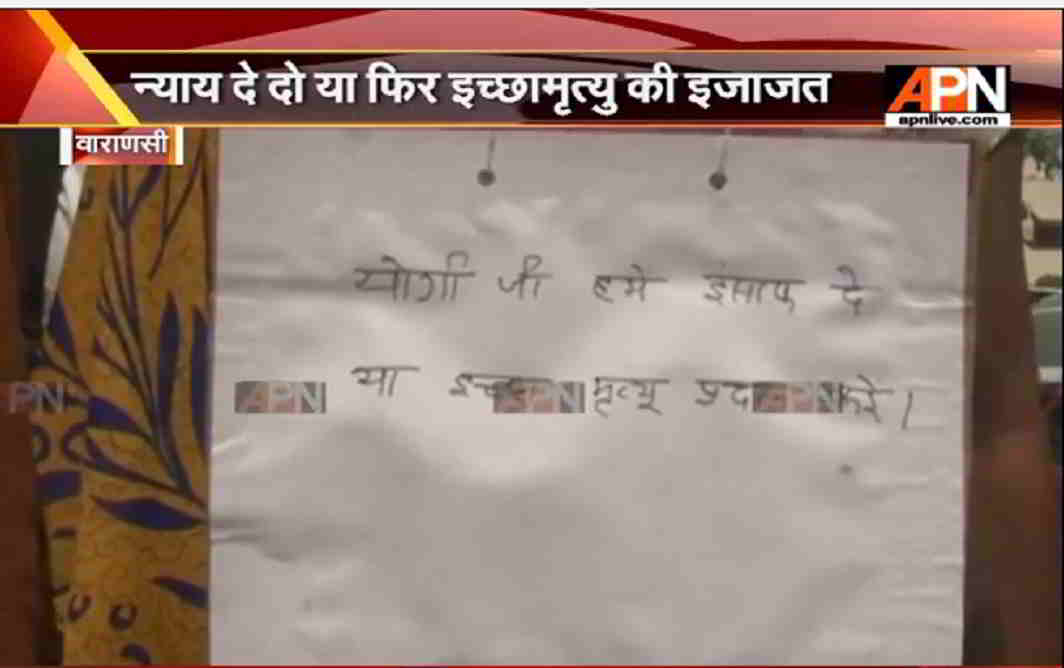 न्याय दे दो या फिर इच्छामृत्यु की इजाजत
APN
apnlive.com
वाराणसी
योगी जी हमे इंसाफ दे
या मृत्यू करे।
PN APN APN APN